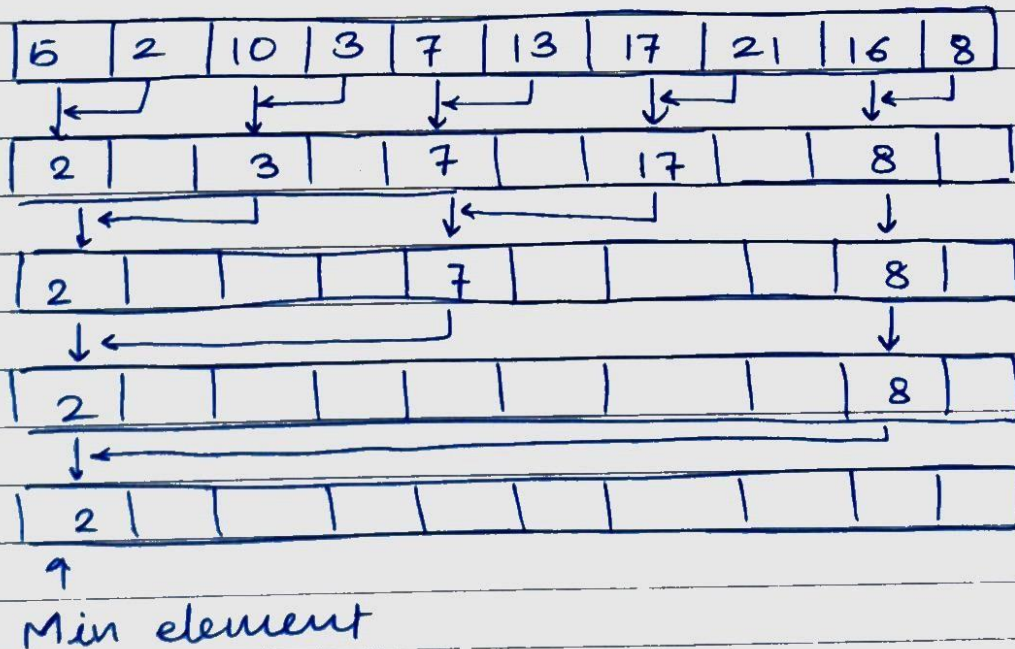 5 2 10 3 7 13 17 21 16 8
2 3 7 17 8
2 7 8
2 8
2
Min element